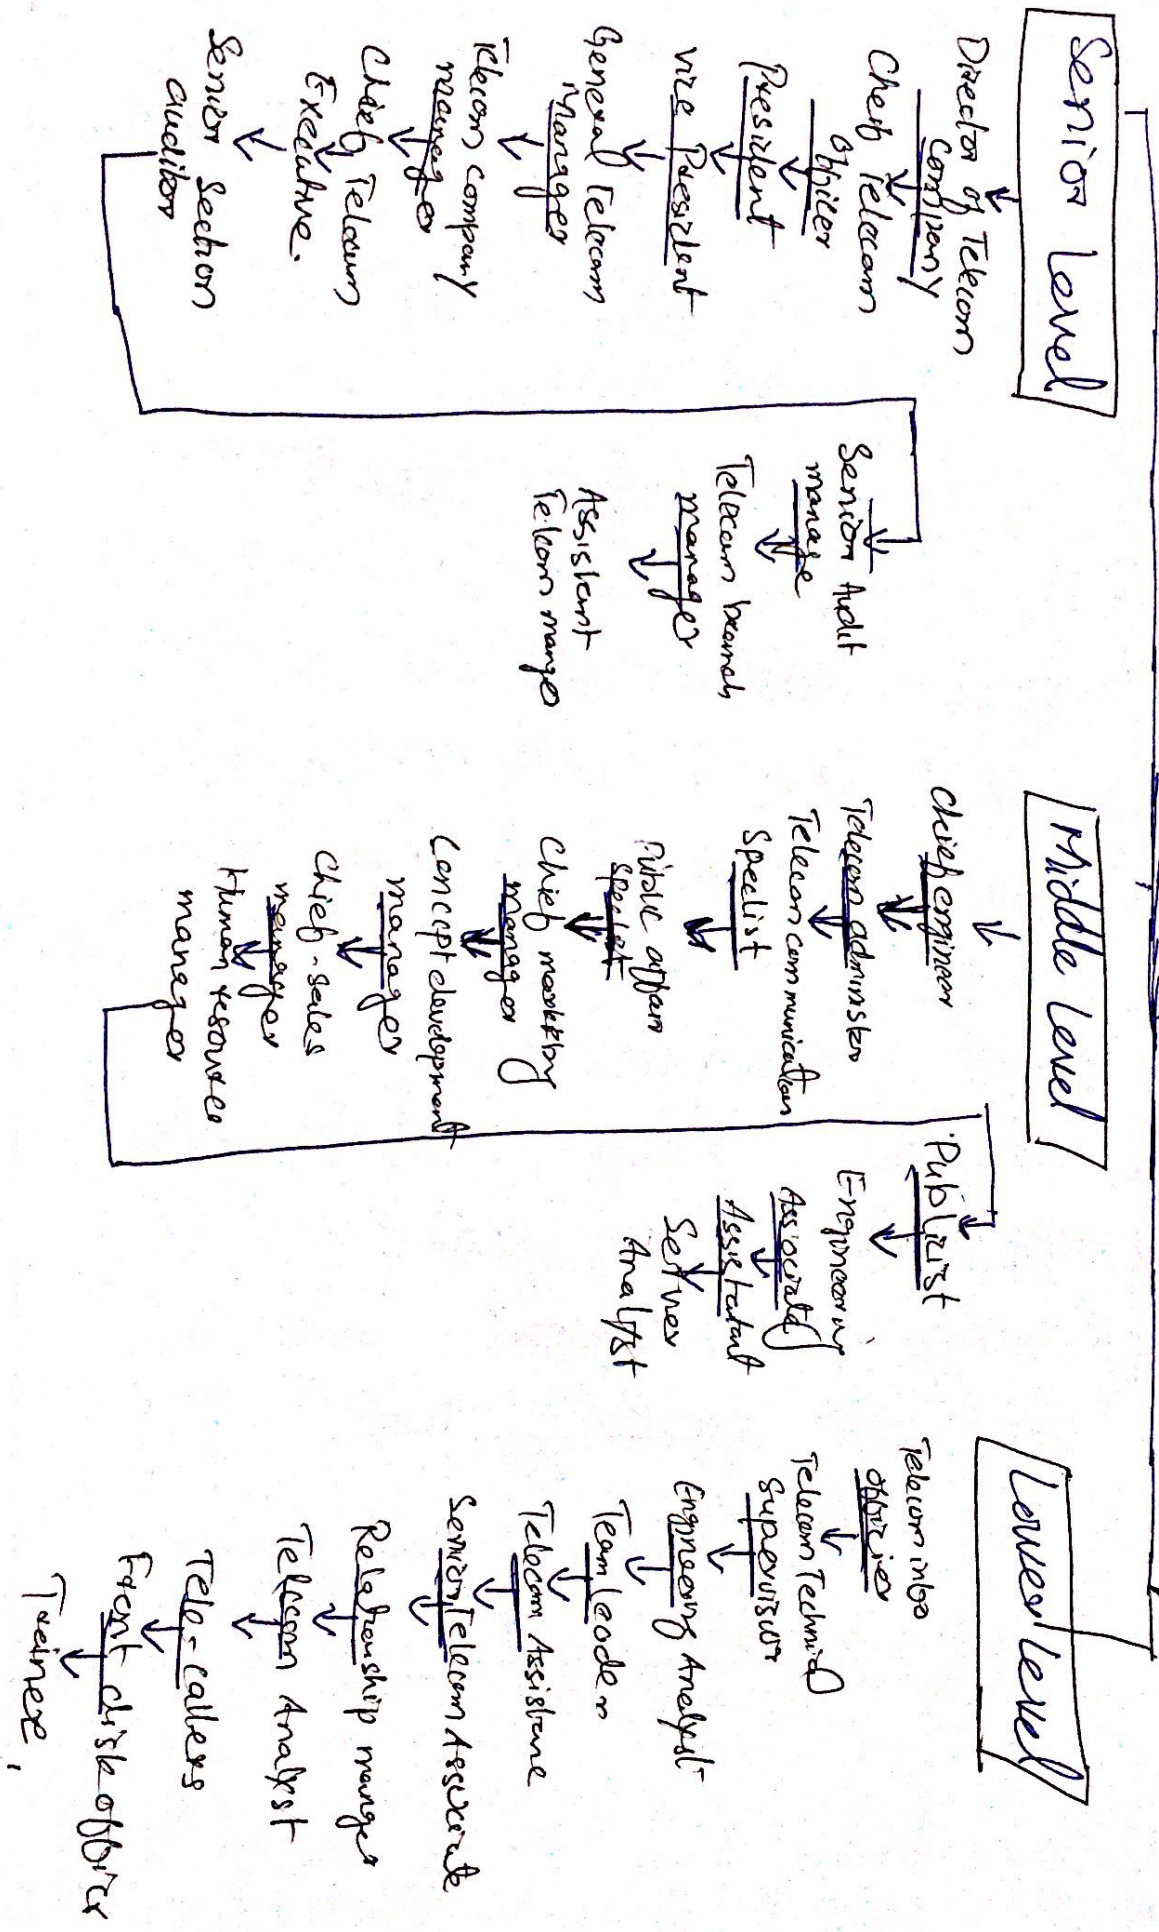 Senior Level
Director of Telecom
Company
Cheif Telecom
Officer
President
Vice President
General Telecom
Manager
Telecom company
manager
Chief Telecom
Executive.
Senior Section
auditor
Senior Audit
manage
Telecom branch
manager
Assistant
Telecom manger
Middle Level
Cheif engineer
Telecom adminster
Telecommunication
Speclist
Public affair
Chief marketing
manager
Concept development
manager
Chief-sales
manager
Human resource
manager
Publicist
Engineering
Associated
Assistatant
Server
Analyst
Lower Level
Telecom info
officier
Telecom Technical
Supervisor
Engineering Analyst
Team leader
Telecom Assistane
Senior Telecom Associate
Relationship manger
Telecom Analyst
Tele-callers
Front disk officer
Trainee